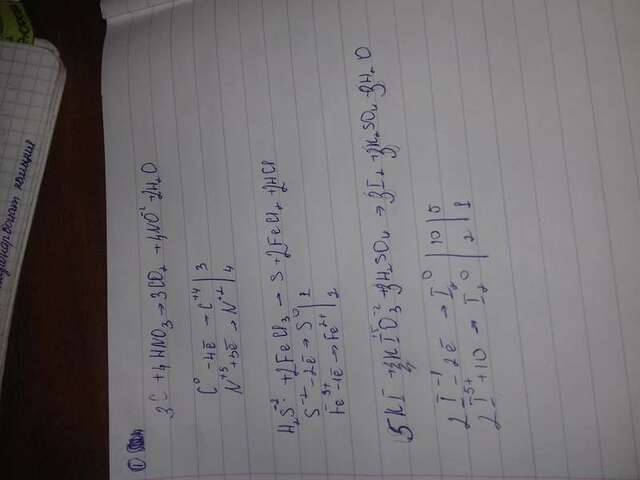 ①
3C + 4HNO₃ → 3CO₂ + 4NO⁻² + 2H₂O
C⁰ - 4ē → C⁺⁴ | 3
N⁺⁵ + 3ē → N⁺² | 4
H₂S⁻² + 2FeCl₃ → S + 2FeCl₂ + 2HCl
S⁻² - 2ē → S⁰ | 1
Fe³⁺ - 1ē → Fe²⁺ | 2
5KI + KIO₃⁻² + 3H₂SO₄ → 3I₂ + 3K₂SO₄ + 3H₂O
2I⁻¹ - 2ē → I₂⁰ | 10 | 5
2I⁵⁺ + 10 → I₂⁰ | 2 | 1